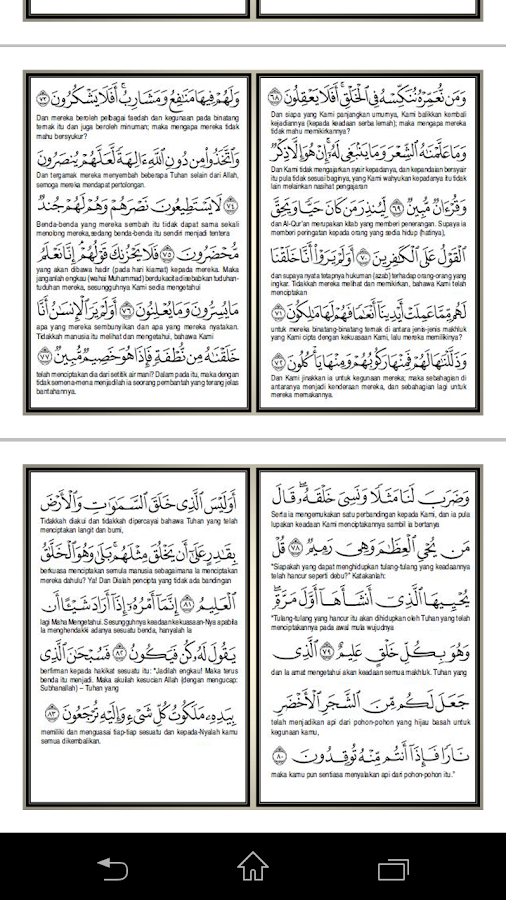 وَمَن نُّعَمِّرْهُ نُنَكِّسْهُ فِي الْخَلْقِ ۖ أَفَلَا يَعْقِلُونَ ٦٨
Dan siapa yang Kami panjangkan umurnya, Kami balikkan kembali
kejadiannya (kepada keadaan serba lemah); maka mengapa mereka
tidak mahu memikirkannya?
وَمَا عَلَّمْنَاهُ الشِّعْرَ وَمَا يَنبَغِي لَهُ ۚ إِنْ هُوَ إِلَّا ذِكْرٌ
Dan Kami tidak mengajarkan syair kepadanya, dan kepandaian bersyair
itu pula tidak sesuai baginya, yang Kami wahyukan kepadanya itu tidak
lain melainkan nasihat pengajaran
وَقُرْآنٌ مُّبِينٌ ٦٩ لِّيُنذِرَ مَن كَانَ حَيًّا وَيَحِقَّ
dan Al-Qur'an merupakan kitab yang memberi penerangan. Supaya ia
memberi peringatan kepada orang yang sedia hidup (hatinya),
الْقَوْلُ عَلَى الْكَافِرِينَ ٧٠ أَوَلَمْ يَرَوْا أَنَّا خَلَقْنَا
dan supaya nyata tetapnya hukuman (azab) terhadap orang-orang yang
ingkar. Tidakkah mereka melihat dan memikirkan, bahawa Kami telah
menciptakan
لَهُم مِّمَّا عَمِلَتْ أَيْدِينَا أَنْعَامًا فَهُمْ لَهَا مَالِكُونَ ٧١
untuk mereka binatang-binatang ternak di antara jenis-jenis makhluk
yang Kami cipta dengan kekuasaan Kami, lalu mereka memilikinya?
وَذَلَّلْنَاهَا لَهُمْ فَمِنْهَا رَكُوبُهُمْ وَمِنْهَا يَأْكُلُونَ ٧٢
Dan Kami jinakkan ia untuk kegunaan mereka; maka sebahagian di
antaranya menjadi kenderaan mereka, dan sebahagian lagi untuk
mereka memakannya.
وَلَهُمْ فِيهَا مَنَافِعُ وَمَشَارِبُ ۖ أَفَلَا يَشْكُرُونَ ٧٣
Dan mereka beroleh pelbagai faedah dan kegunaan pada binatang
ternak itu dan juga beroleh minuman; maka mengapa mereka tidak
mahu bersyukur?
وَاتَّخَذُوا مِن دُونِ اللَّهِ آلِهَةً لَّعَلَّهُمْ يُنصَرُونَ
Dan tergamak mereka menyembah beberapa Tuhan selain dari Allah,
semoga mereka mendapat pertolongan.
٧٤ لَا يَسْتَطِيعُونَ نَصْرَهُمْ وَهُمْ لَهُمْ جُندٌ
Benda-benda yang mereka sembah itu tidak dapat sama sekali
menolong mereka, sedang benda-benda itu sendiri menjadi tentera
مُّحْضَرُونَ ٧٥ فَلَا يَحْزُنكَ قَوْلُهُمْ ۘ إِنَّا نَعْلَمُ
yang akan dibawa hadir (pada hari kiamat) kepada mereka. Maka
janganlah engkau (wahai Muhammad) berdukacita disebabkan tuduhan-
tuduhan mereka, sesungguhnya Kami sedia mengetahui
مَا يُسِرُّونَ وَمَا يُعْلِنُونَ ٧٦ أَوَلَمْ يَرَ الْإِنسَانُ أَنَّا
apa yang mereka sembunyikan dan apa yang mereka nyatakan.
Tidakkah manusia itu melihat dan mengetahui, bahawa Kami
خَلَقْنَاهُ مِن نُّطْفَةٍ فَإِذَا هُوَ خَصِيمٌ مُّبِينٌ ٧٧
telah menciptakan dia dari setitik air mani? Dalam pada itu, maka dengan
tidak semena-mena menjadilah ia seorang pembantah yang terang jelas
bantahannya.
وَضَرَبَ لَنَا مَثَلًا وَنَسِيَ خَلْقَهُ ۖ قَالَ
Serta ia mengemukakan satu perbandingan kepada Kami, dan ia pula
lupakan keadaan Kami menciptakannya sambil ia bertanya
مَن يُحْيِي الْعِظَامَ وَهِيَ رَمِيمٌ ٧٨ قُلْ
"Siapakah yang dapat menghidupkan tulang-tulang yang keadaannya
telah hancur seperti debu?" Katakanlah:
يُحْيِيهَا الَّذِي أَنشَأَهَا أَوَّلَ مَرَّةٍ ۖ
"Tulang-tulang yang hancur itu akan dihidupkan oleh Tuhan yang telah
menciptakannya pada awal mula wujudnya
وَهُوَ بِكُلِّ خَلْقٍ عَلِيمٌ ٧٩ الَّذِي
dan Ia amat mengetahui akan keadaan semua makhluk. Tuhan yang
جَعَلَ لَكُم مِّنَ الشَّجَرِ الْأَخْضَرِ
telah menjadikan api dari pohon-pohon yang hijau basah untuk
kegunaan kamu,
نَارًا فَإِذَا أَنتُم مِّنْهُ تُوقِدُونَ ٨٠
maka kamu pun sentiasa menyalakan api dari pohon-pohon itu."
أَوَلَيْسَ الَّذِي خَلَقَ السَّمَاوَاتِ وَالْأَرْضَ
Tidakkah diakui dan tidakkah dipercayai bahawa Tuhan yang telah
menciptakan langit dan bumi,
بِقَادِرٍ عَلَىٰ أَن يَخْلُقَ مِثْلَهُم ۚ بَلَىٰ وَهُوَ الْخَلَّاقُ
berkuasa menciptakan semula manusia sebagaimana Ia menciptakan
mereka dahulu? Ya! Dan Dialah pencipta yang tidak ada bandingan
الْعَلِيمُ ٨١ إِنَّمَا أَمْرُهُ إِذَا أَرَادَ شَيْئًا أَن
lagi Maha Mengetahui. Sesungguhnya keadaan kekuasaan-Nya apabila
Ia menghendaki adanya sesuatu benda, hanyalah Ia
يَقُولَ لَهُ كُن فَيَكُونُ ٨٢ فَسُبْحَانَ الَّذِي
berfirman kepada hakikat sesuatu itu: "Jadilah engkau! Maka terus
benda itu menjadi. Maka akuilah kesucian Allah (dengan mengucap:
Subhanallah) – Tuhan yang
بِيَدِهِ مَلَكُوتُ كُلِّ شَيْءٍ وَإِلَيْهِ تُرْجَعُونَ ٨٣
memiliki dan menguasai tiap-tiap sesuatu dan kepada-Nyalah kamu
semua dikembalikan.